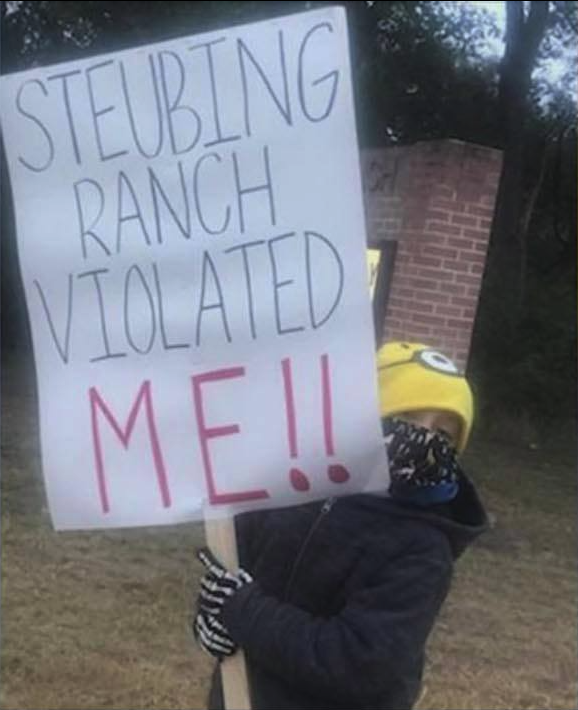 STEUBING
RANCH
VIOLATED
ME!!